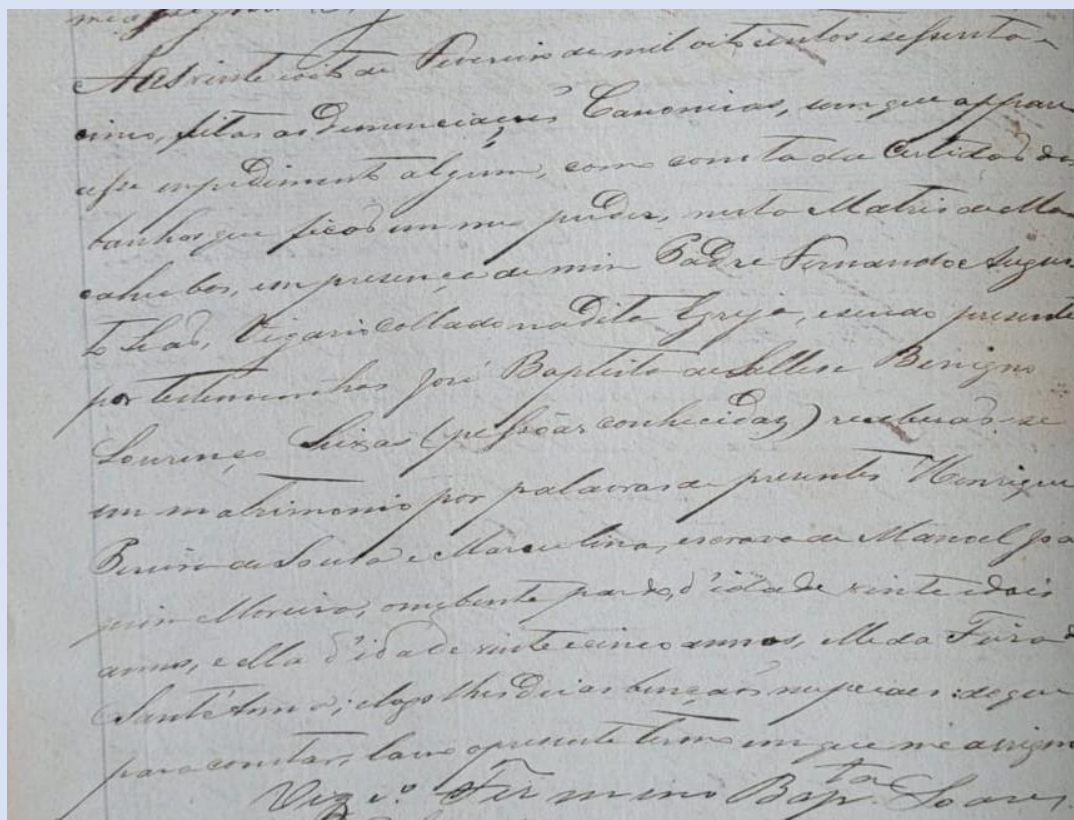 Aos vinte oito de Fevereiro de mil oito centos e sessenta e
cinco, feitas as denunciações Canonicas, sem que apparec
esse impedimento algum, como consta da Certidão dos
banhos que ficão em meu poder, nesta Matris de Ma
cahubas, em presença de mim Padre Fernando Augus
to Leão, Vigario Collado na dita Igreja, e sendo presente
por testemunhas José Baptista de Selles e Benigno
Lourenço Seixas (pessôas conhecidas) receberão-se
em matrimonio por palavras de presente Henrique
Pereira de Souza e Marculina, escrava de Manoel Joa
quim Moreira; o nubente pardo, d'idade vinte e dois
annos, e ella d'idade vinte e cinco annos, elle da Feira d
Sant'Anna; e logo lhes dei as bençãos nupciaes: do que
para constar, lavro o presente termo em que me assigno
Vigr.º Firmino Bap.ta Soares